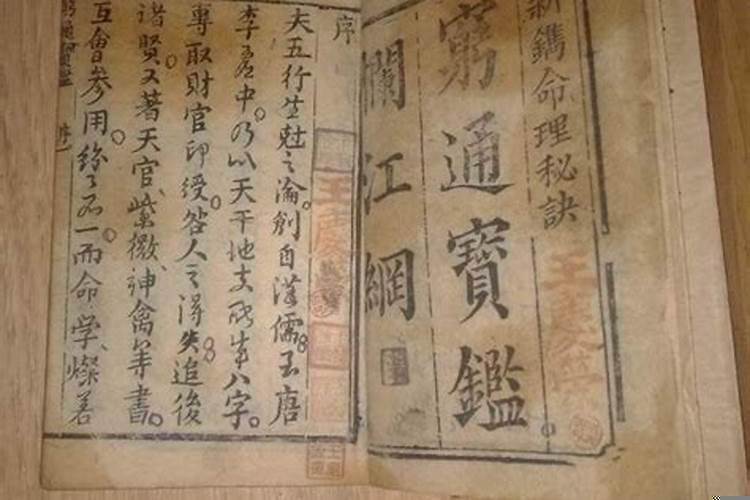 新鐫命理秘訣
窮通寶鑑
欄江網
序
夫五行生尅之淪。創自漢儒。至唐
李虛中。乃以天干地支配八字。
專取財官印綬。人之得失。追後
諸賢。又著天官、紫微、神禽等書。
互會參用。紛々不一。而命學、燦若